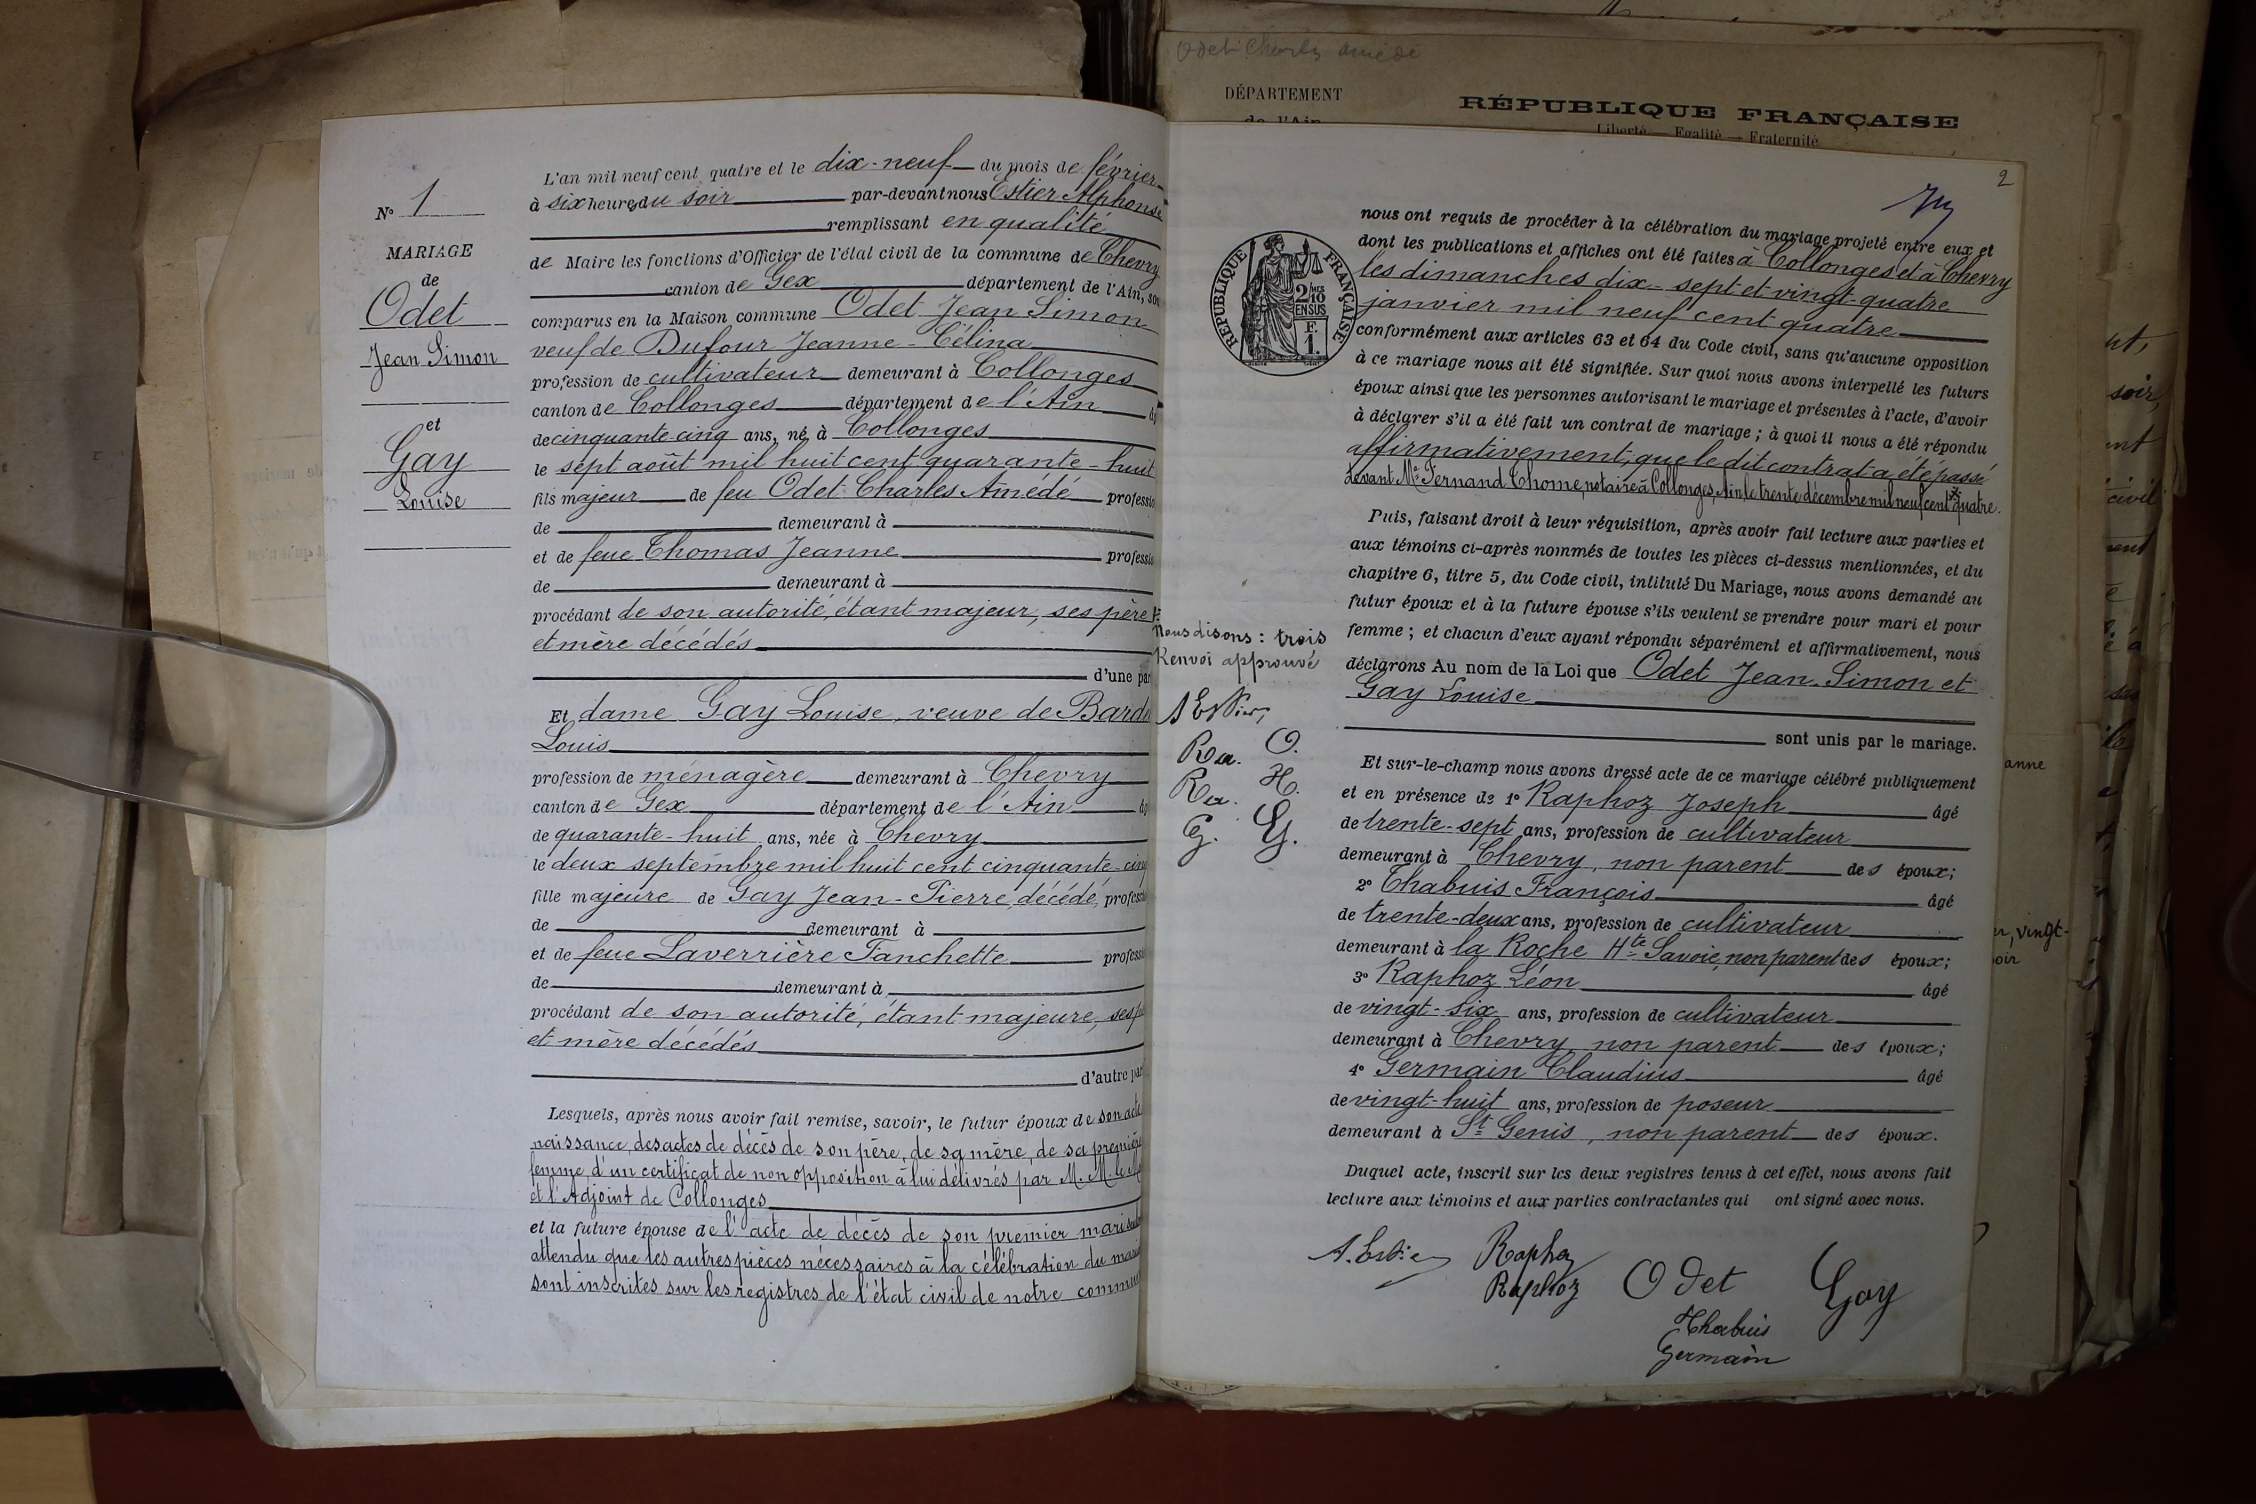 N° 1
MARIAGE
de
Odet
Jean Simon
et
Gay
Louise
L'an mil neuf cent quatre et le dix-neuf du mois de février
à six heures du soir par-devant nous Estier Alphonse
remplissant en qualité
de Maire les fonctions d'Officier de l'état civil de la commune de Chevry
canton de Gex département de l'Ain, son
comparus en la Maison commune Odet Jean Simon
veuf de Dufour Jeanne-Célina
profession de cultivateur demeurant à Collonges
canton de Collonges département de l'Ain
de cinquante-cinq ans, né à Collonges
le sept août mil huit cent quarante-huit
fils majeur de feu Odet Charles Amédé professio
de demeurant à
et de feue Thomas Jeanne professi
de demeurant à
procédant de son autorité, étant majeur, ses père
et mère décédés
d'une par
Et dame Gay Louise, veuve de
Louis
profession de ménagère demeurant à Chevry
canton de Gex département de l'Ain
de quarante-huit ans, née à Chevry
le deux septembre mil huit cent cinquante-cinq
fille majeure de Gay Jean-Pierre, décédé, profess
de demeurant à
et de feue Laverrière Fanchette professi
de demeurant à
procédant de son autorité, étant majeure, ses
et mère décédés
d'autre par
Lesquels, après nous avoir fait remise, savoir, le futur époux de son acte
naissance, des actes de décès de son père, de sa mère, de sa première
femme, d'un certificat de non opposition à lui délivrés par M. M. le
et l'Adjoint de Collonges
et la future épouse de l'acte de décès de son premier mari
attendu que les autres pièces nécessaires à la célébration du mari
sont inscrites sur les registres de l'état civil de notre commun
Odet Charles Amédé
DÉPARTEMENT
de l'Ain
RÉPUBLIQUE FRANÇAISE
Liberté — Egalité — Fraternité
2
RÉPUBLIQUE FRANÇAISE
2/10
EN SUS
F.
1.
nous ont requis de procéder à la célébration du mariage projeté entre eux et
dont les publications et affiches ont été faites à Collonges et à Chevry
les dimanches dix-sept et vingt-quatre
janvier mil neuf cent quatre
conformément aux articles 63 et 64 du Code civil, sans qu'aucune opposition
à ce mariage nous ait été signifiée. Sur quoi nous avons interpellé les futurs
époux ainsi que les personnes autorisant le mariage et présentes à l'acte, d'avoir
à déclarer s'il a été fait un contrat de mariage ; à quoi il nous a été répondu
affirmativement, que le dit contrat a été passé
devant Me Fernand Thome, notaire à Collonges, Ain, le trente décembre mil neuf cent quatre.
Puis, faisant droit à leur réquisition, après avoir fait lecture aux parties et
aux témoins ci-après nommés de toutes les pièces ci-dessus mentionnées, et du
chapitre 6, titre 5, du Code civil, intitulé Du Mariage, nous avons demandé au
futur époux et à la future épouse s'ils veulent se prendre pour mari et pour
femme ; et chacun d'eux ayant répondu séparément et affirmativement, nous
déclarons Au nom de la Loi que Odet Jean-Simon et
Gay Louise
sont unis par le mariage.
Et sur-le-champ nous avons dressé acte de ce mariage célébré publiquement
et en présence de 1° Raphoz Joseph âgé
de trente-sept ans, profession de cultivateur
demeurant à Chevry, non parent des époux;
2° Chabuis François âgé
de trente-deux ans, profession de cultivateur
demeurant à la Roche Hte Savoie, non parent des époux;
3° Raphoz Léon âgé
de vingt-six ans, profession de cultivateur
demeurant à Chevry non parent des époux;
4° Germain Claudius âgé
de vingt-huit ans, profession de poseur
demeurant à St Genis, non parent des époux.
Duquel acte, inscrit sur les deux registres tenus à cet effet, nous avons fait
lecture aux témoins et aux parties contractantes qui ont signé avec nous.
Nous disons : trois
Renvoi approuvé
A Estier
Ra. O.
Ra. H.
G. G.
A. Estier Raphoz
Raphoz Odet Gay
Chabuis
Germain
anne
vingt-
soir
soir,
civil